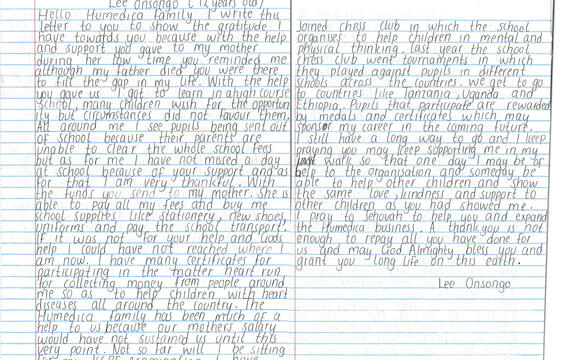 Lee Onsongo (12 years old)
Hello Humedica Family I write this
letter to you to show the gratitude I
have towards you because with the help
and support you gave to my mother
during her low time you reminded me
although my Father died you were there
to fill the gap in my life. With the help
you gave us I got to learn in a
School, many children wish for the opportun
ity but circumstances did not favour them.
All around me I see pupils being sent out
of school because their parents are
unable to clear the whole school fees
but as for me I have not missed a day
at school because of your support and as
for that I am very thankful. With
the funds you send to my mother. She is
able to pay all my fees and buy me
school supplies like stationery, new shoes,
uniforms and pay the school transport.
If it was not for your help and Gods
help I could have not reached where I
am now. I have many certificates for
participating in the matter heart run,
for collecting money from people around
me so as to help children with heart
diseases all around the country. The
Humedica family has been much of a
help to us because our mothers salary
would have not sustained us until this
very point. Not so far will I be sitting
joined chess club in which the school
organises to help children in mental and
physical thinking. last year the school
chess club went tournaments in which
they played against pupils in different
schools across the countries. we get to go
to countries like Tanzania, Uganda and
Ethiopia. Pupils that participate are rewarded
by medals and certificates which may
sponsor my career in the coming future.
I still have a long way to go and I keep
praying you may keep supporting me in my
walk so that one day I may be of
help to the organisation and someday be
able to help other children and show
the same love, kindness and support to
other children as you had showed me.
I pray to Jehovah to help you and expand
the Humedica business. A thankyou is not
enough to repay all you have done for
us and may God Almighty bless you and
grant you long life on this earth.
Lee Onsongo